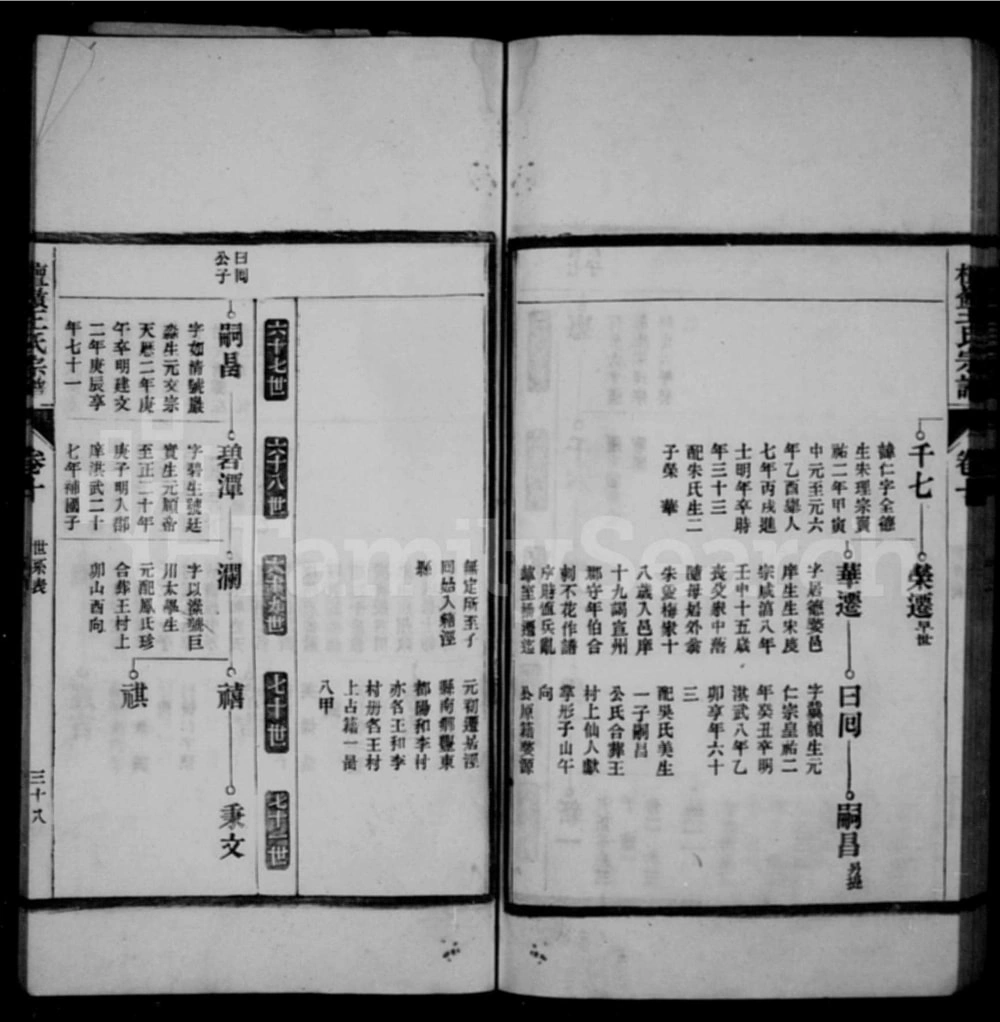 王氏宗譜
千七
諱仁字全德
生朱理宗寶
祐二年甲寅
中元至元六
年乙酉舉人
七年丙戌進
士明年卒時
年三十三
配朱氏生二
子榮 華
榮遷早世
華遷
字居德婺邑
庠生生宋度
宗咸淳八年
壬申十五歲
喪父家中落
隨母媯外翁
朱壺梅家十
八歲入邑庠
十九謁宣州
郡守年伯合
刺不花作譜
序時值兵亂
曰同
字冀顏生元
仁宗皇祐二
年癸丑卒明
洪武八年乙
卯享年六十
三
配吳氏美生
一子嗣昌
公氏合葬王
村上仙人獻
掌形子山午
向
公原籍婺源
嗣昌另提
無定所至子
同始入籍涇
縣
元初遷居涇
縣南鄉豐東
都陽和李村
亦名王和李
村册名王村
上占籍一啚
八甲
六十七世
六十八世
六十九世
七十世
七十一世
曰同
公子
嗣昌
字如情號嚴
森生元文宗
天歷二年庚
午卒明建文
二年庚辰享
年七十一
碧潭
字碧生號廷
實生元順帝
至正二十年
庚子明入郡
庠洪武二十
七年補國子
瀾
字以漾號巨
川太學生
元配鳳氏珍
合葬王村上
卯山西向
禧
祺
秉文
王氏宗譜
卷十
世系表
三十八
FamilySearch